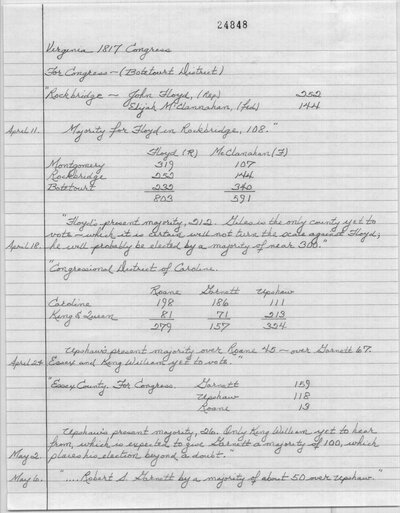 24848
Virginia 1817 Congress
For Congress - (Botetourt District)
"Rockbridge - John Floyd, (Rep) 252
Elijah McClannahan, (Fed) 144
April 11. Majority for Floyd in Rockbridge, 108."
Floyd (R) McClanahan (F)
Montgomery 319 107
Rockbridge 252 144
Botetourt 232 340
803 591
"Floyd's present majority, 212. Giles is the only county yet to
vote - which it is certain will not turn the scale against Floyd;
April 18. he will probably be elected by a majority of near 300."
"Congressional District of Caroline.
Roane Garnett Upshaw
Caroline 198 186 111
King & Queen 81 71 213
279 157 324
Upshaw's present majority over Roane 45 - over Garnett 67.
April 24. Essex and King William yet to vote."
"Essex County. For Congress. Garnett 159
Upshaw 118
Roane 13
Upshaw's present majority, 26. Only King William yet to hear
from, which is expected to give Garnett a majority of 100, which
May 2. places his election beyond a doubt."
May 6. ".... Robert S. Garnett by a majority of about 50 over Upshaw."